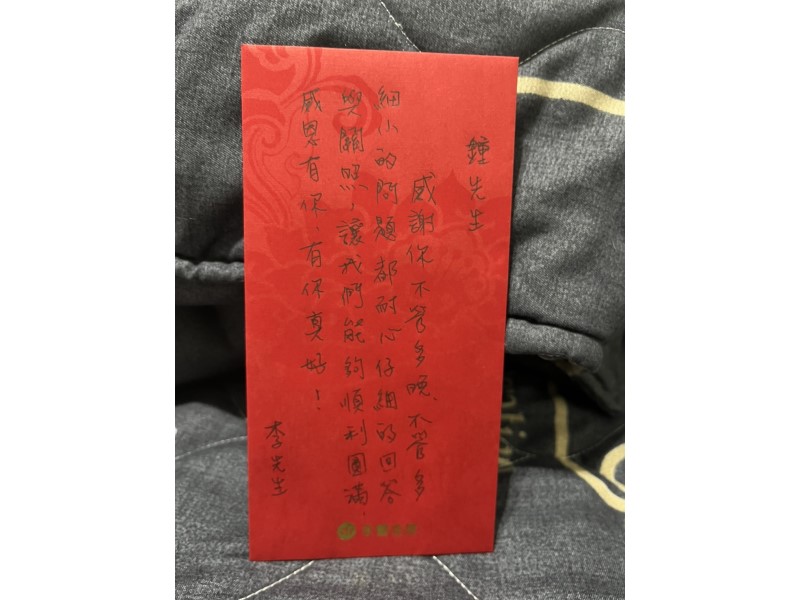 鍾先生
感謝你不管多晚、不管多
細小的問題都耐心仔細的回答
與關照，讓我們能夠順利圓滿，
感恩有你、有你真好！
李先生